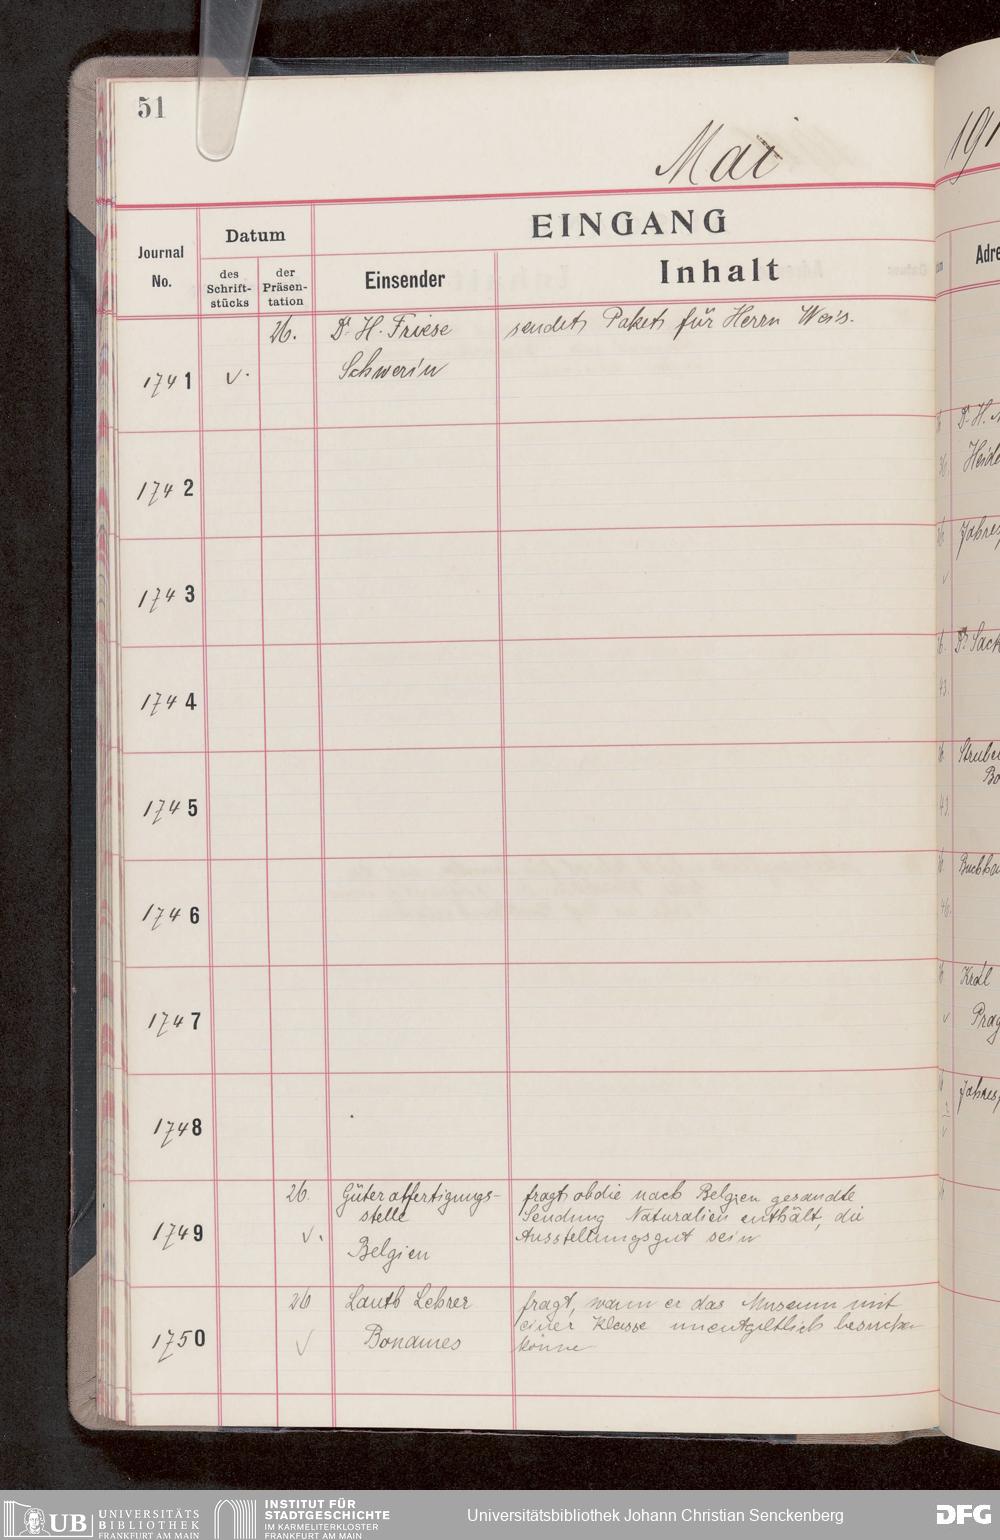 51
Mai
191
EINGANG
Journal
No.
Datum
des
Schrift-
stücks
der
Präsen-
tation
Einsender
Inhalt
Adre
1741
V.
26.
Dr. H. Friese
Schwerin
sendet Paket für Herrn Weis.
1742
1743
1744
1745
1746
1747
1748
1749
26.
V.
Güterabfertigungs-
stelle
Belgien
fragt ob die nach Belgien gesandte
Sendung Naturalien enthält, die
Ausstellungsgut sein
1750
26
V
Lauth Lehrer
Bonames
fragt, wann er das Museum mit
einer Klasse unentgeltlich besuchen
könne
Dr. H.
Heide
Jahres
Dr. Sack
Strube
Kral
Prag
Jahres
UB
UNIVERSITÄTS
BIBLIOTHEK
FRANKFURT AM MAIN
INSTITUT FÜR
STADTGESCHICHTE
IM KARMELITERKLOSTER
FRANKFURT AM MAIN
Universitätsbibliothek Johann Christian Senckenberg
DFG